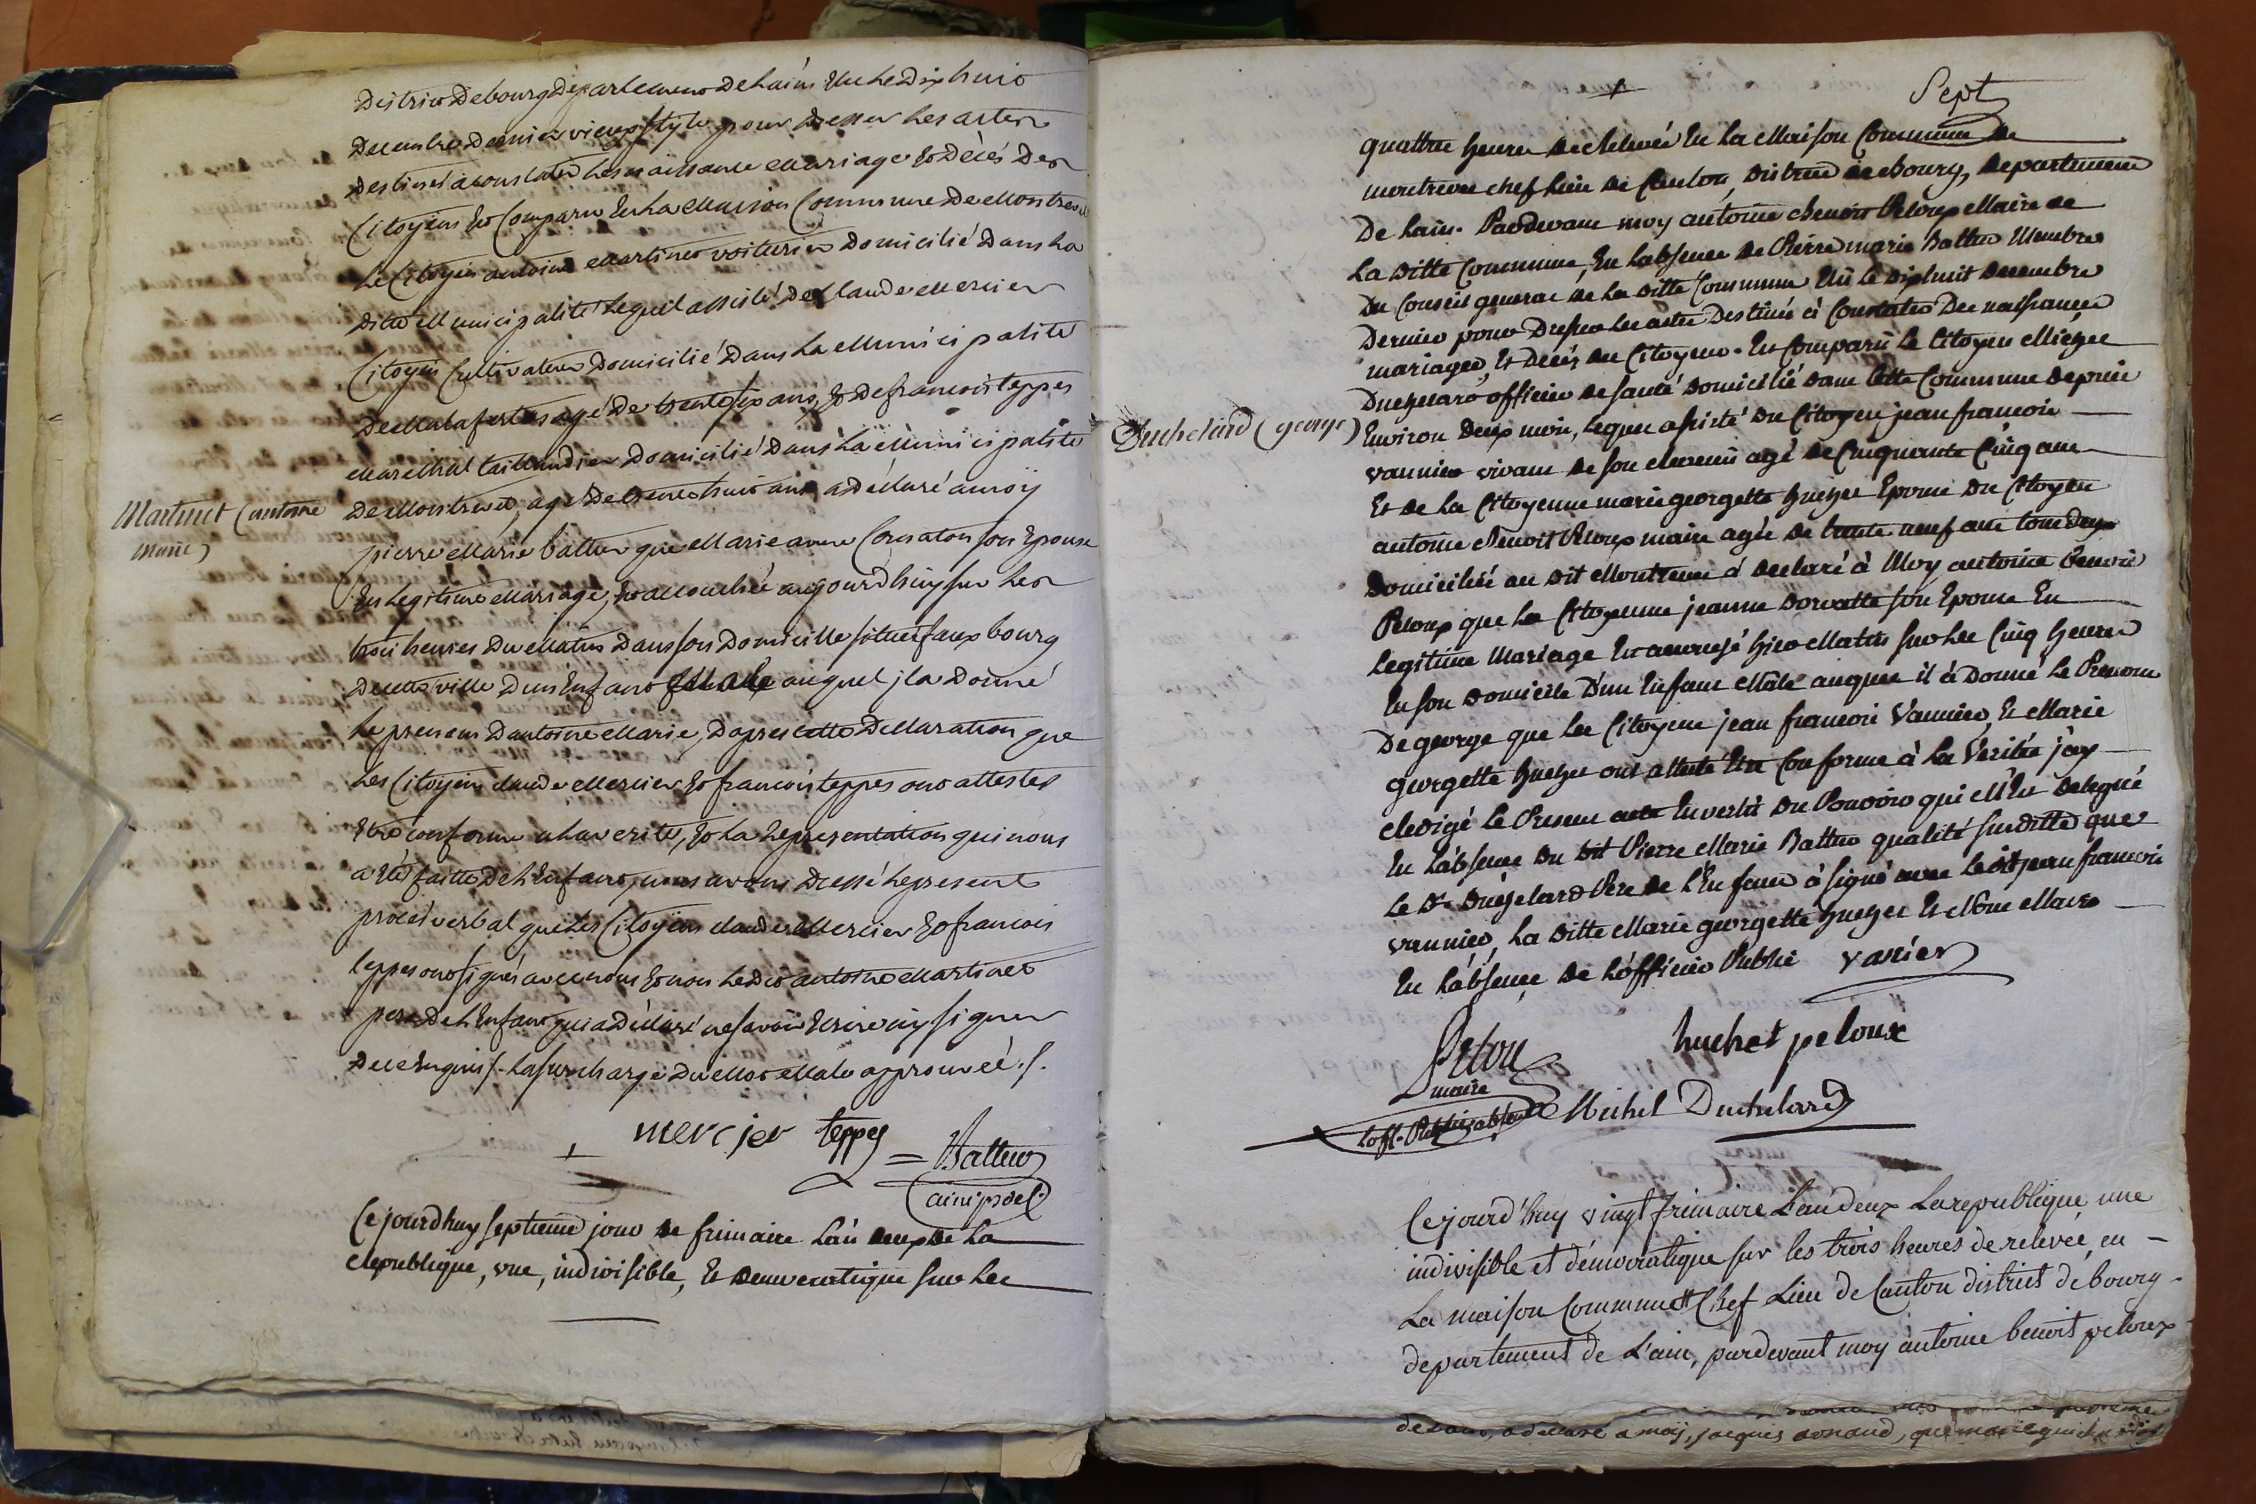 District de bourg departement de Lain Elu le Dix huit
Decembre dernier vieux style pour dresser les actes
destinés à constater les naissance Mariage et décès des
Citoyens Est Comparu En la Maison Commune de Montrevel
Le Citoyen antoine Martinet voiturier domicilié dans la
ditte Municipalité Lequel assisté de Claude Mercier
Citoyen Cultivateur domicilié dans la Municipalité
de Malafertas agé de trente six ans, Et de francois teppes
Marechal taillandier domicilié dans la Municipalité
de Montrevel, agé de trente huit ans a déclaré a moÿ
Martinet (antoine
Marie)
pierre Marie battur que Marie anne Cornaton son Epouse
En Legitime Mariage, Est accouchée aujourdhuy sur les
trois heures du Matin dans son domicille situé faux bourg
de cette ville d'un Enfant Male auquel jl a donné
le prenom d'antoine Marie, dapres cette declaration que
les Citoyens claude Mercier Et francois teppes ont attestés
Etre conforme a la verité, Et la representation qui nous
a Eté faitte de l'Enfant, nous avons dressé le present
procès verbal que les Citoyens claude Mercier Et francois
teppes ont signés avec nous Et non ledit antoine Martinet
pere de l'Enfant qui a déclaré ne savoir Ecrire ny signer
de ce Enquis /. la surcharge du Mot Male approuvéé ./.
mercier teppes Battur
Ce jourdhuy septieme jour de frimaire Lan deux de la
republique, vne, indivisible, Et democratique sur les
Sept
quattre heures de relevée En la Maison Commune de
montrevel chef lieu de Canton, district de bourg, departement
De Lain. Pardevant moy antoine Benoit Peloux Maire de
La ditte Commune, En l'absence de Pierre marie Battur Membre
Du Conseil general de la ditte Commune Elû le dixhuit decembre
Dernier pour Dresser les actes Destinés à Constater Des naissances
mariages, Et Décès des Citoyens. Est Comparû le Citoyen Michel
Duchelard officier de santé domicilié dans Cette Commune depuis
Duchelard (george)
Environ deux mois, lequel assisté du Citoyen jean francois
vannier vivant de son revenû agé de Cinquante Cinq ans
Et de la Citoyenne marie georgette huchet Epouse du Citoyen
antoine Benoit Peloux maire agée de trente neuf ans tous deux
domiciliés au dit Montrevel à declaré à Moy antoine Benoit
Peloux que la Citoyenne jeanne dorvatte son Epouse En
Legitime Mariage Est accouchée hier Matin sur les Cinq heures
En son domicile D'un Enfant Mâle auquel il à Donné le Prenom
De george que les Citoyens jean francois Vannier, Et Marie
georgette huchet ont attesté Etre Conforme à la Verité j'ay
redigé le Present acte En vertû du Pouvoir qui M'Est delegué
En L'absence du dit Pierre Marie Battur qualité susditte que
le dt. Duchelard Pere de l'Enfant à signé avec le dit jean francois
vannier, la ditte Marie georgette huchet Et Nous Maire
En l'absence de Lofficier Public vanier
Pelou
maire
huchet peloux
Loff. Public absent Michel Duchelard
Ce jourd'huy vingt frimaire L'an deux La republique une
indivisible et démocratique sur les trois heures de relevée, en
La maison Commune Chef Lieu de Canton district de bourg
departement de L'ain, pardevant moy antoine benoit peloux
a déclaré a moÿ, jacques